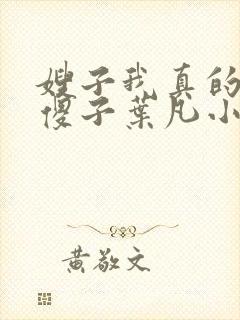 嫂子我真的
傻子葉凡小
黃敬文